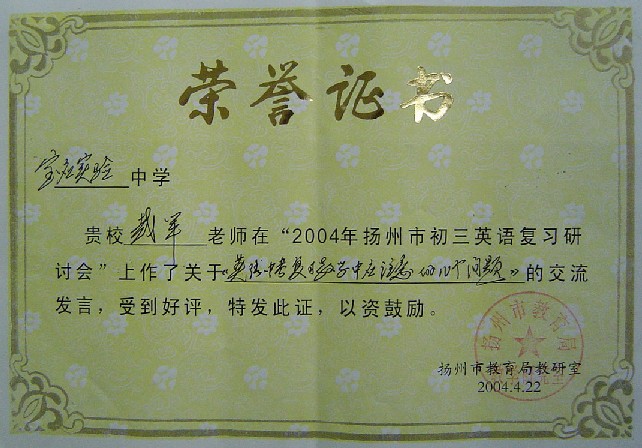 荣誉证书
宝应实验中学
贵校戴军老师在“2004年扬州市初三英语复习研
讨会”上作了关于《英语中考复习教学中应注意的几个问题》的交流
发言，受到好评，特发此证，以资鼓励。
扬州市教育局
扬州市教育局教研室
2004.4.22